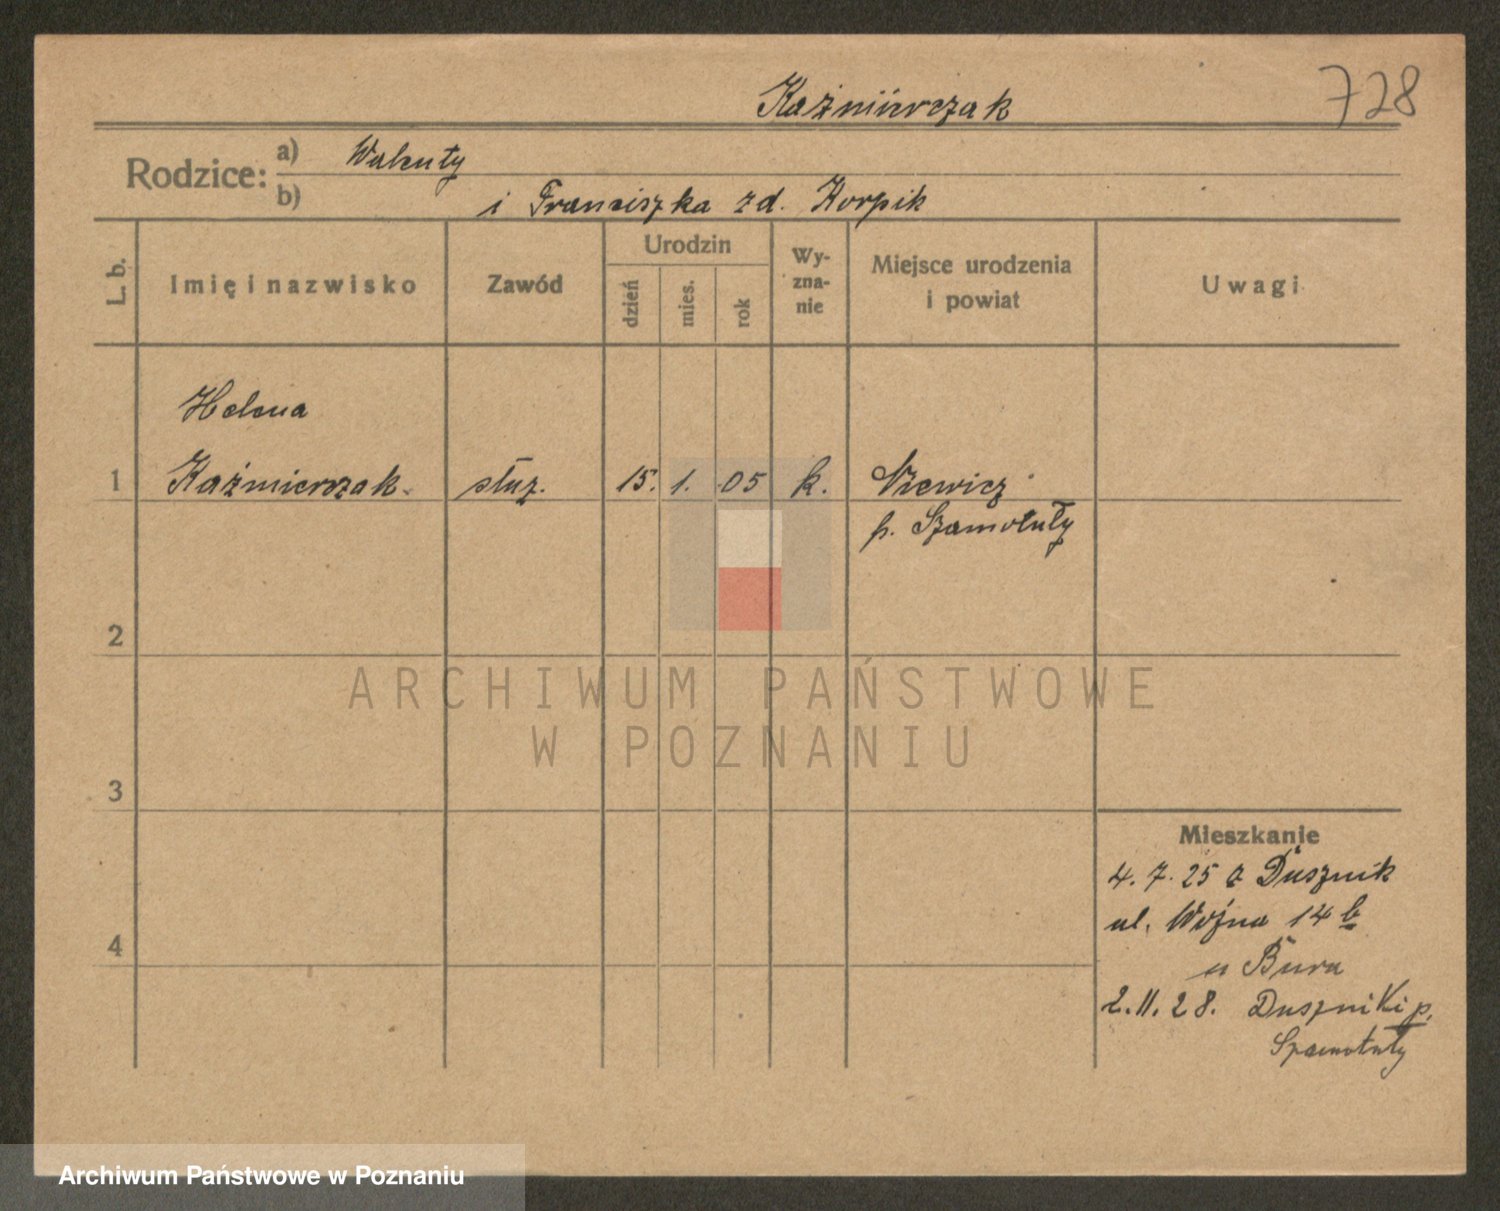 Kaźmierczak
728
Rodzice:
a) Walenty
b) i Franciszka zd. Korpik
L. b.
Imię i nazwisko
Zawód
Urodzin
dzień
mies.
rok
Wy-
zna-
nie
Miejsce urodzenia
i powiat
Uwagi
Helena
1 Kaźmierczak służ. 15. 1. 05 k.
p. Szamotuły
2
3
4
Mieszkanie
4. 7. 25 z Dusznik
ul. Woźna 14 b
u Bura
2. 11. 28. Duszniki p.
Szamotuły
ARCHIWUM PAŃSTWOWE
W POZNANIU
Archiwum Państwowe w Poznaniu